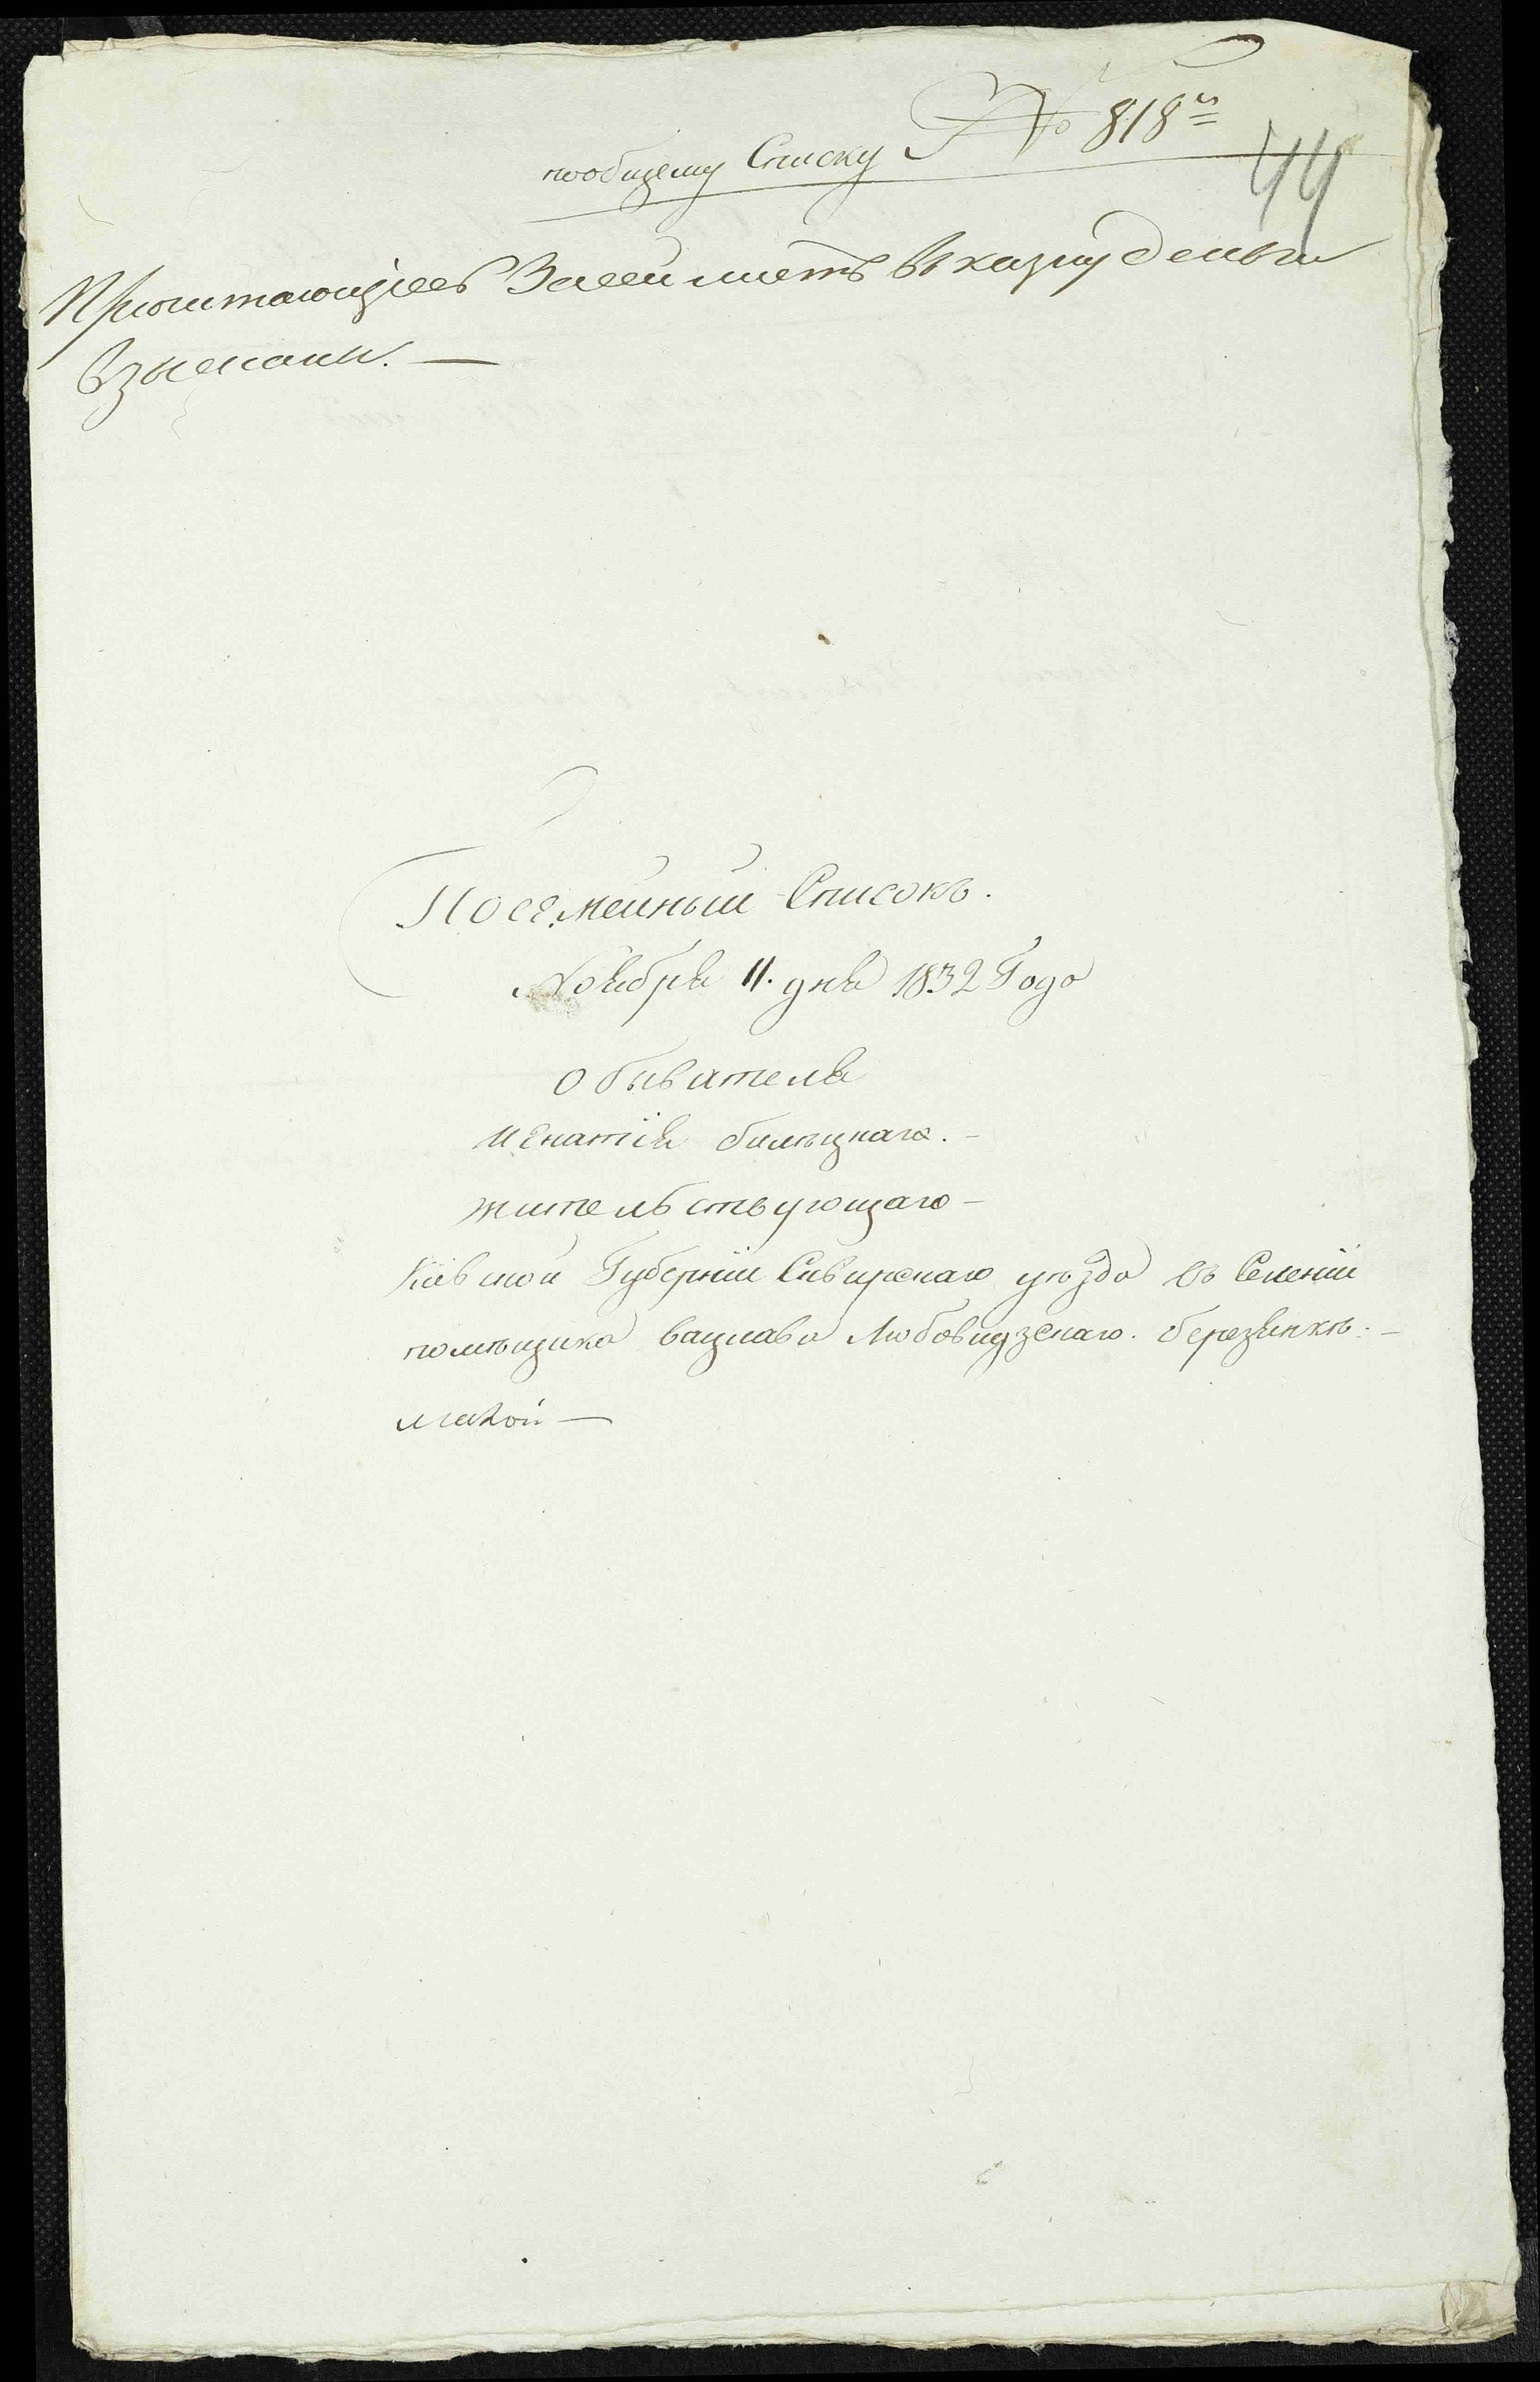 пообщему Списку № 818й
44
Причитающiесь Засей листъ Въ казну деньги
Взысканы. —
Посемейный Списокъ.
Ноября 11. дня 1832 Года
Обывателя
Игнатiя билецкаго. —
жительствующаго —
Кiевской Губернiи Сквирскаго уѣзда въ Селенiи
помѣщика вацлава Любовидзскаго. березянкѣ. —
малой —